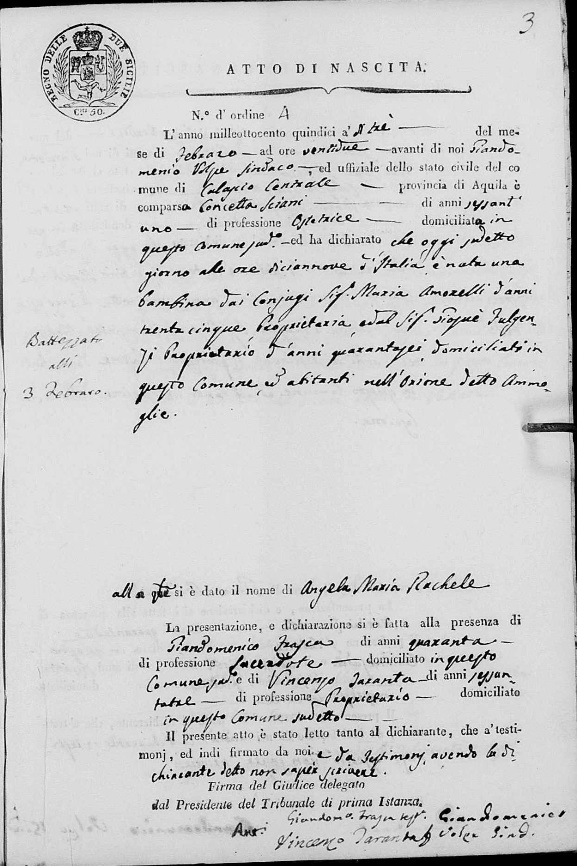 3
REGNO DELLE DUE SICILIE
Cmi 50.
ATTO DI NASCITA.
N.° d' ordine 4
L'anno milleottocento quindici a' dì tre del me-
se di Febraro ad ore ventidue avanti di noi Giando-
menio Volpe Sindaco, ed uffiziale dello stato civile del co
mune di Calascio Centrale provincia di Aquila è
comparsa Concetta Sciani di anni sessant'
uno di professione Ostetrice domiciliata in
questo Comune sud.° ed ha dichiarato che oggi sudetto
giorno alle ore diciannove d'Italia, è nata una
bambina dai Conjugi Sig. Maria Amorelli d'anni
trenta cinque Proprietaria, e dal Sig. Giosuè Fulgen-
zj Proprietario d'anni quarantasei domiciliati in
questo Comune, ed abitanti nell'Orione detto Ammo-
glie.
Battezzata
alli
3 Febraro.
alla quale si è dato il nome di Angela Maria Rachele
La presentazione, e dichiarazione si è fatta alla presenza di
Giandomenico Frasca di anni quaranta
di professione Sacerdote domiciliato in questo
Comune sud.° e di Vincenzo Taranta di anni sessan
tatre di professione Proprietario domiciliato
in questo Comune sudetto
Il presente atto è stato letto tanto al dichiarante, che a' testi-
monj, ed indi firmato da noi e da Testimonj avendo la di
chiarante detto non saper scrivere.
Firma del Giudice delegato
dal Presidente del Tribunale di prima Istanza.
Giandom.° Frasca test.° Giandomenico
Vincenzo Taranta Volpe Sind.